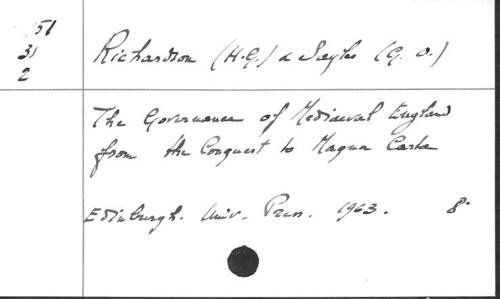 51
31
2
Richardson (H.G.) & Sayles (G. O.)
The Governance of Mediaeval England
from the Conquest to Magna Carta
Edinburgh. Univ. Press. 1963. 8°